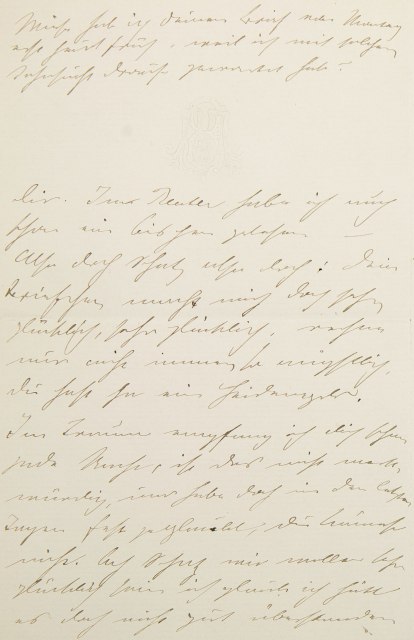 hab ich deinen Brief von
erst heut früh, weil ich mit solcher
Sehnsucht drauf gewartet hab?
dir. Im Reuter habe ich auch
schon ein bischen gelesen —
Also doch Schatz also doch! Dein
Briefchen macht mich doch sehr
glücklich, sehr glücklich,
nur nicht immer so
du hast ja ein Heidengeld.
Im Traume empfang ich dich schon
jede Nacht, ist das nicht merk-
würdig, und habe doch in den letzten
Tagen fest geglaubt, du kommst
nicht. Ach Schatz wir wollen sehr
glücklich sein ich glaub ich hätt
es doch nicht gut überstanden